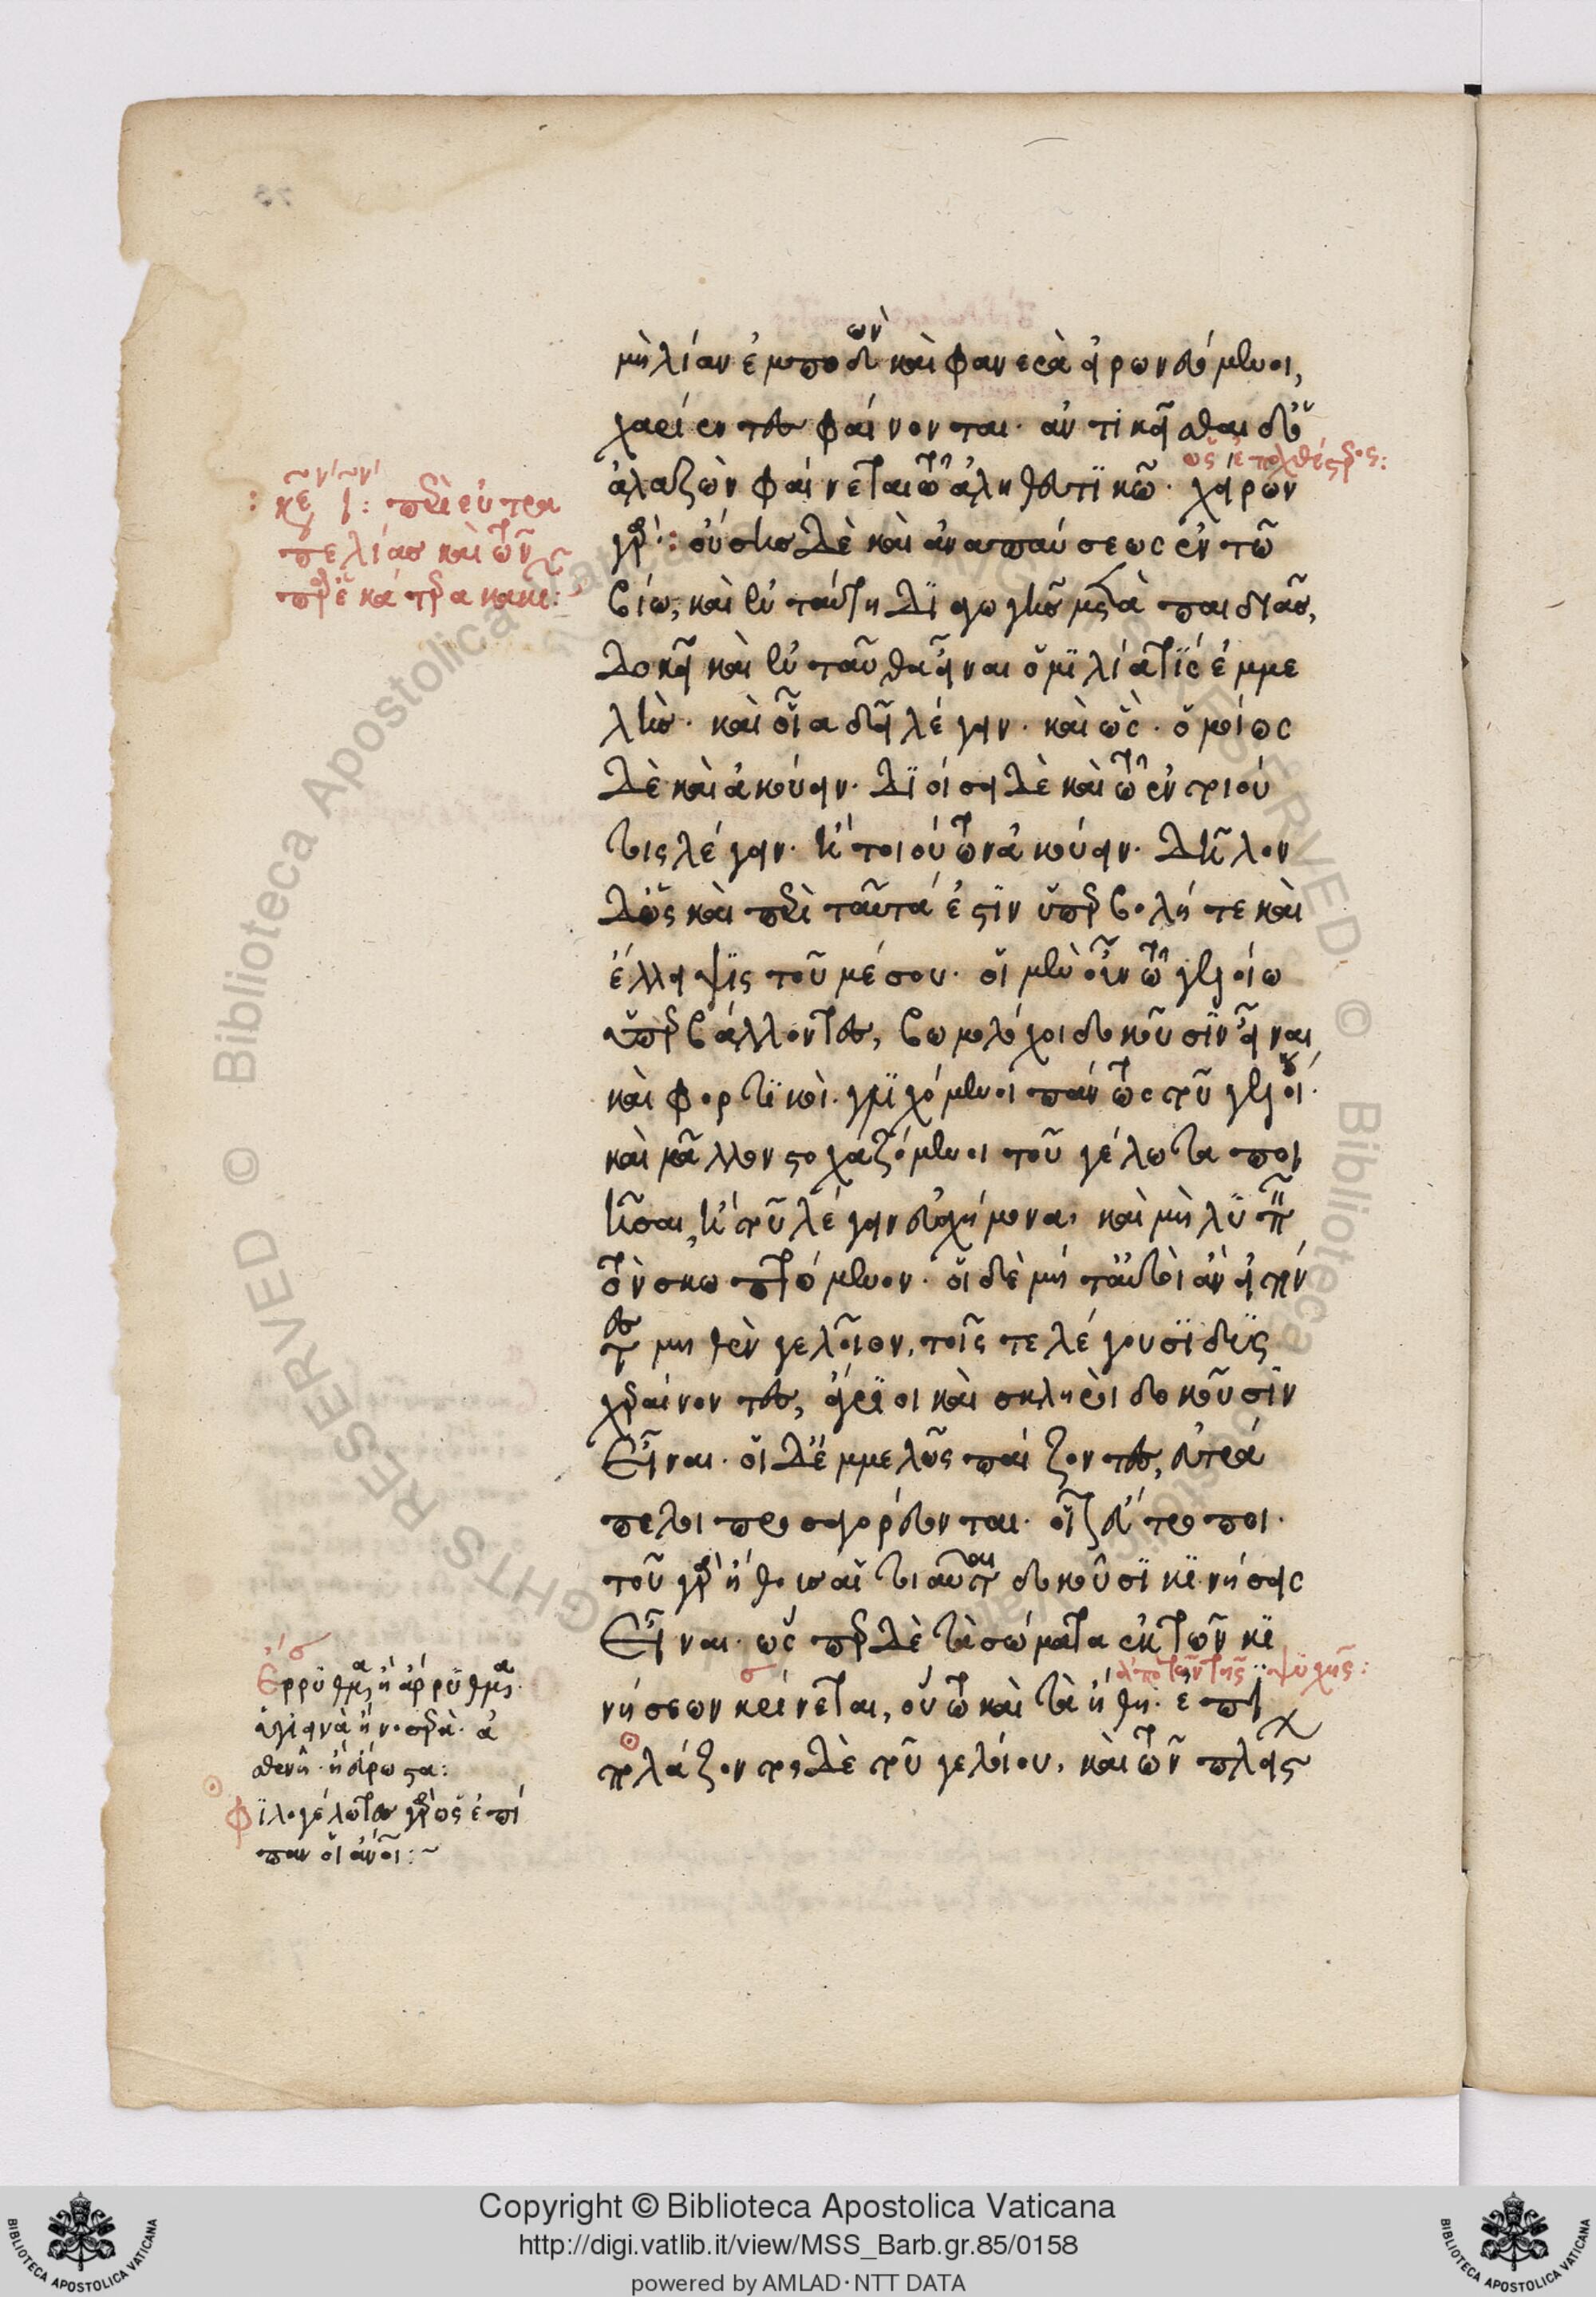 μὴ λίαν ἐμποδὼν καὶ φανερὰ εἰρωνευόμενοι,
χαρίεντες φαίνονται· ἀντικεῖσθαι δὲ
ἀλαζὼν φαίνεται τῷ ἀληθευτικῷ· χείρων
γάρ: οὔσης δὲ καὶ ἀναπαύσεως ἐν τῷ
βίῳ, καὶ ἐν ταύτῃ διαγωγῆς μετὰ παιδιᾶς,
δοκεῖ καὶ ἐνταῦθα εἶναι ὁμιλία τίς ἐμμε
λής· καὶ οἷα δεῖ λέγειν· καὶ ὥς· ὁμοίως
δὲ καὶ ἀκούειν· διοίσει δὲ καὶ τὸ ἐν τοιού
τοις λέγειν· ἢ τοιούτων ἀκούειν· δῆλον
δ ὡς καὶ περὶ ταῦτά ἐστιν ὑπερβολή τε καὶ
ἔλλειψις τοῦ μέσου· οἱ μὲν οὖν τῷ γελοίῳ
ὑπερβάλλοντες, βωμολόχοι δοκοῦσιν εἶναι
καὶ φορτικοί· γλιχόμενοι πάντως τοῦ γελοίου·
καὶ μᾶλλον στοχαζόμενοι τοῦ γέλωτα ποι
ῆσαι, ἢ τοῦ λέγειν εὐσχήμονα, καὶ μὴ λυπεῖν
τὸν σκωπτόμενον· οἱ δὲ μήτ αὐτοὶ ἂν εἰπόν
τες μηθὲν γελοῖον, τοῖς τε λέγουσι δυσ
χεραίνοντες, ἄγριοι καὶ σκληροὶ δοκοῦσιν
εἶναι· οἱ δ ἐμμελῶς παίζοντες, εὐτρά
πελοι προσαγορεύονται· οἷον εὔτροποι·
τοῦ γὰρ ἤθους αἱ τοιαῦται δοκοῦσι κινήσεις
εἶναι· ὥσπερ δὲ τὰ σώματα ἐκ τῶν κι
νήσεων κρίνεται, οὕτω καὶ τὰ ἤθη· ἐπι
πολάζοντος δὲ τοῦ γελοίου, καὶ τῶν πλείστ
περὶ εὐτρα
πελίας καὶ τῶν
παρ ἑκάτερα κακιῶν:
ἀπὸ τῶν τῆς ψυχῆς:
εὔρρυθμα ἢ ἄρρυθμα·
ὑγιεινὰ ἢ νοσερά· ἀ
σθενῆ· ἢ εὔρωστα:
φιλογέλωτες γὰρ ὡς ἐπί
παν οἱ ἄνοι:~
Copyright © Biblioteca Apostolica Vaticana
http://digi.vatlib.it/view/MSS_Barb.gr.85/0158
powered by AMLAD·NTT DATA
BIBLIOTECA APOSTOLICA VATICANA
BIBLIOTECA APOSTOLICA VATICANA